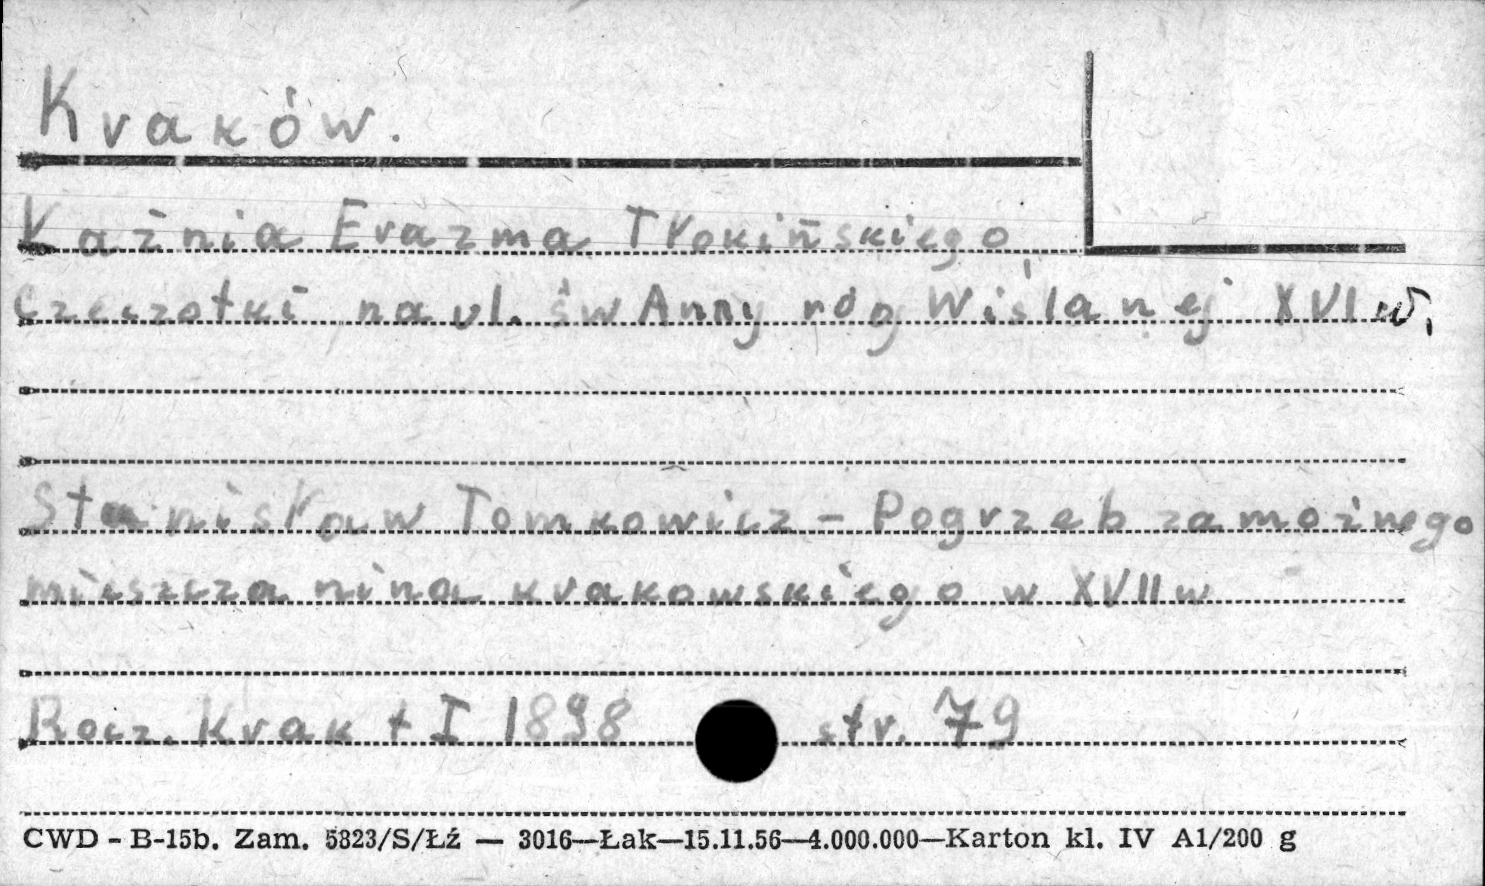 Kraków.
Kaźnia Erazma Tłokińskiego
Czeczotki na ul. św Anny róg Wiślanej XVI w.
Stanisław Tomkowicz - Pogrzeb zamożnego
mieszczanina krakowskiego w XVII w
Rocz. Krak t I 1898 str. 79
CWD - B-15b. Zam. 5823/S/Łź — 3016—Łak—15.11.56—4.000.000—Karton kl. IV A1/200 g